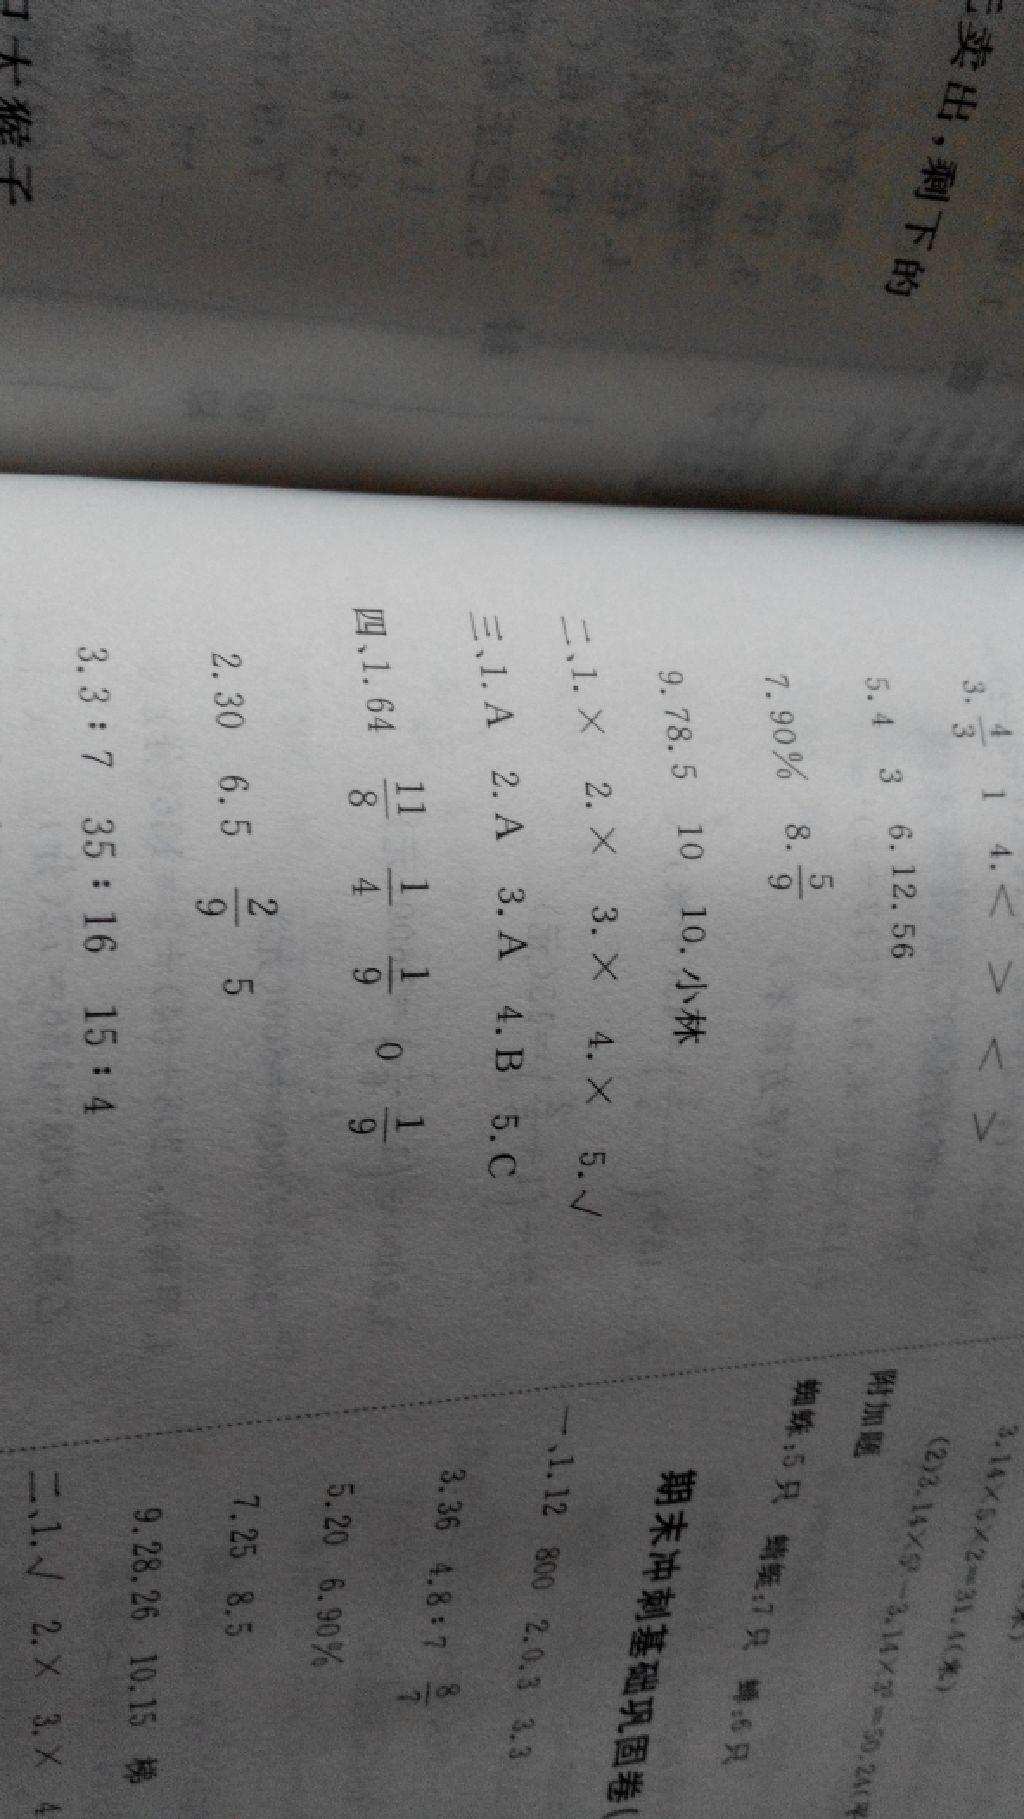 卖出，剩下的
大猴子
3. 4/3 1 4. < > < >
5. 4 3 6. 12.56
7. 90% 8. 5/9
9. 78.5 10 10. 小林
二、1. × 2. × 3. × 4. × 5. √
三、1. A 2. A 3. A 4. B 5. C
四、1. 64 11/8 1/4 1/9 0 1/9
2. 30 6.5 2/9 5
3. 3∶7 35∶16 15∶4
3.14×5×2=31.4(米)
(2)3.14×5²-3.14×3²=50.24(
附加题
蜘蛛:5只 蜻蜓:7只 蝉:6只
期末冲刺基础巩固卷(
一、1. 12 800 2. 0.3 3.3
3. 36 4. 8∶7 8/7
5. 20 6. 90%
7. 25 8. 5
9. 28.26 10. 15 梯
二、1. √ 2. × 3. × 4